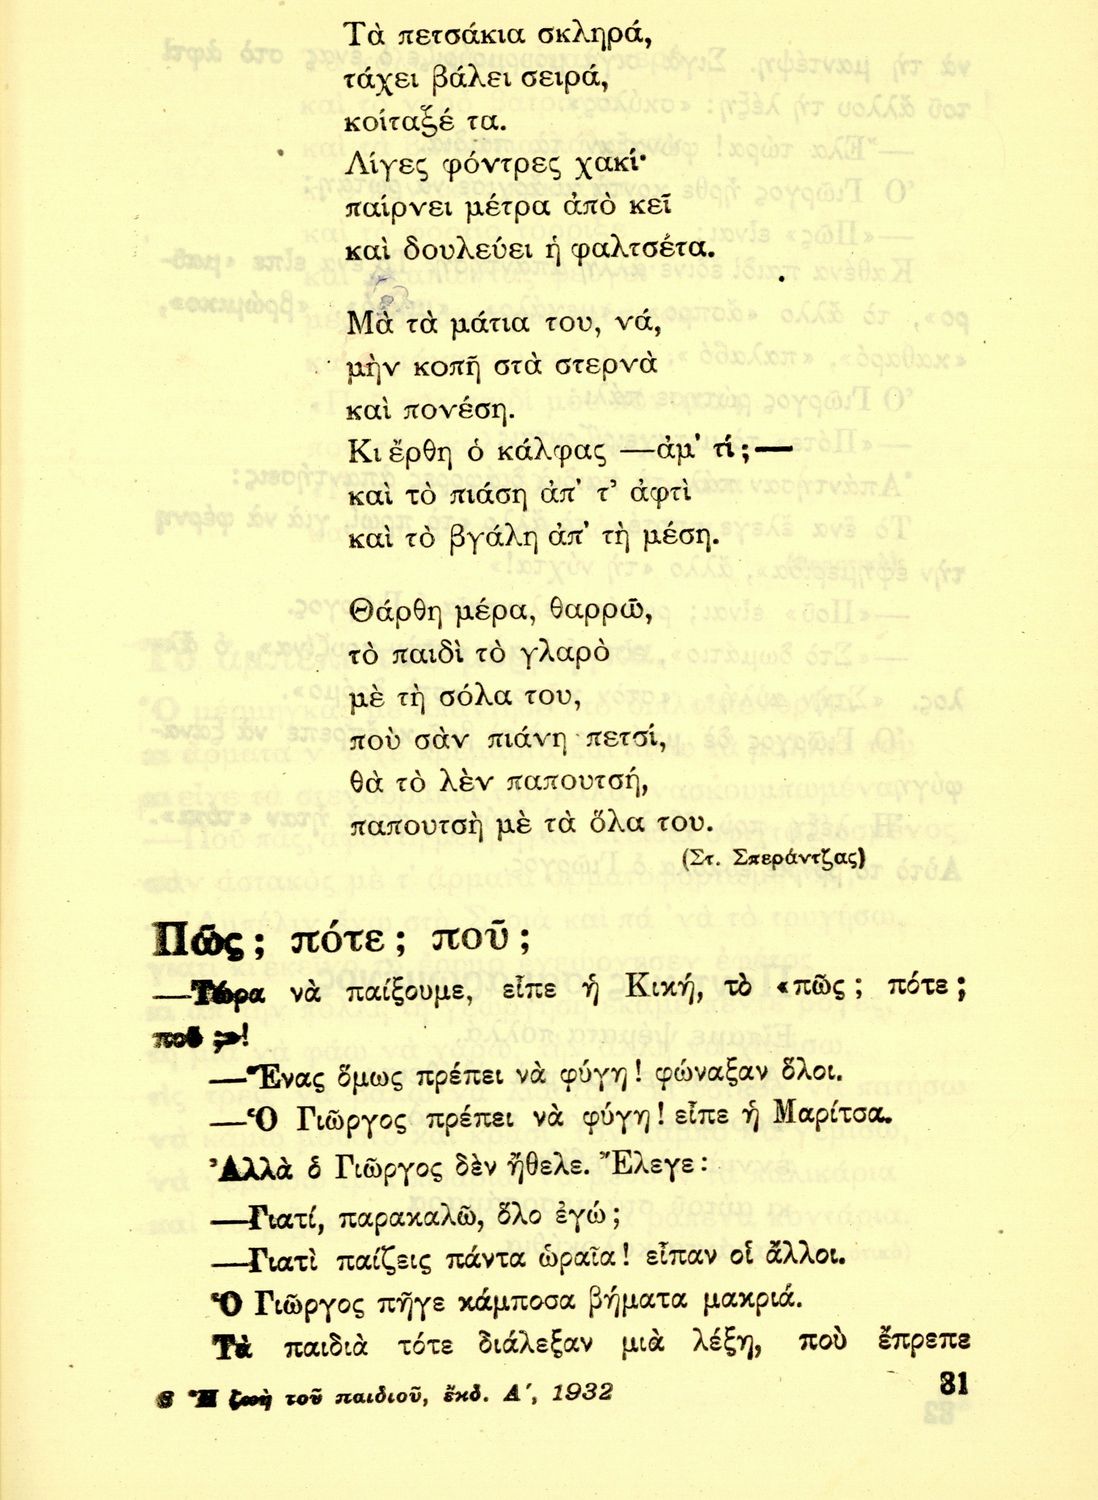 Τὰ πετσάκια σκληρά,
τάχει βάλει σειρά,
κοίταξέ τα.
Λίγες φόντρες χακί·
παίρνει μέτρα ἀπὸ κεῖ
καὶ δουλεύει ἡ φαλτσέτα.
Μὰ τὰ μάτια του, νά,
μὴν κοπῆ στὰ στερνὰ
καὶ πονέση.
Κι ἔρθη ὁ κάλφας —ἀμ' τί ;—
καὶ τὸ πιάση ἀπ' τ' ἀφτὶ
καὶ τὸ βγάλη ἀπ' τὴ μέση.
Θάρθη μέρα, θαρρῶ,
τὸ παιδὶ τὸ γλαρὸ
μὲ τὴ σόλα του,
ποὺ σὰν πιάνη πετσί,
θὰ τὸ λὲν παπουτσή,
παπουτσὴ μὲ τὰ ὅλα του.
(Στ. Σπεράντζας)
Πῶς ; πότε ; ποῦ ;
—Τώρα νὰ παίξουμε, εἶπε ἡ Κική, τὸ «πῶς ; πότε ;
ποῦ ;»!
—Ἕνας ὅμως πρέπει νὰ φύγη ! φώναξαν ὅλοι.
—Ὁ Γιῶργος πρέπει νὰ φύγη ! εἶπε ἡ Μαρίτσα.
Ἀλλὰ ὁ Γιῶργος δὲν ἤθελε. Ἔλεγε :
—Γιατί, παρακαλῶ, ὅλο ἐγώ ;
—Γιατὶ παίζεις πάντα ὡραῖα ! εἶπαν οἱ ἄλλοι.
Ὁ Γιῶργος πῆγε κάμποσα βήματα μακριά.
Τὰ παιδιὰ τότε διάλεξαν μιὰ λέξη, ποὺ ἔπρεπε
6 Ἡ ζωὴ τοῦ παιδιοῦ, ἔκδ. Α', 1932
81